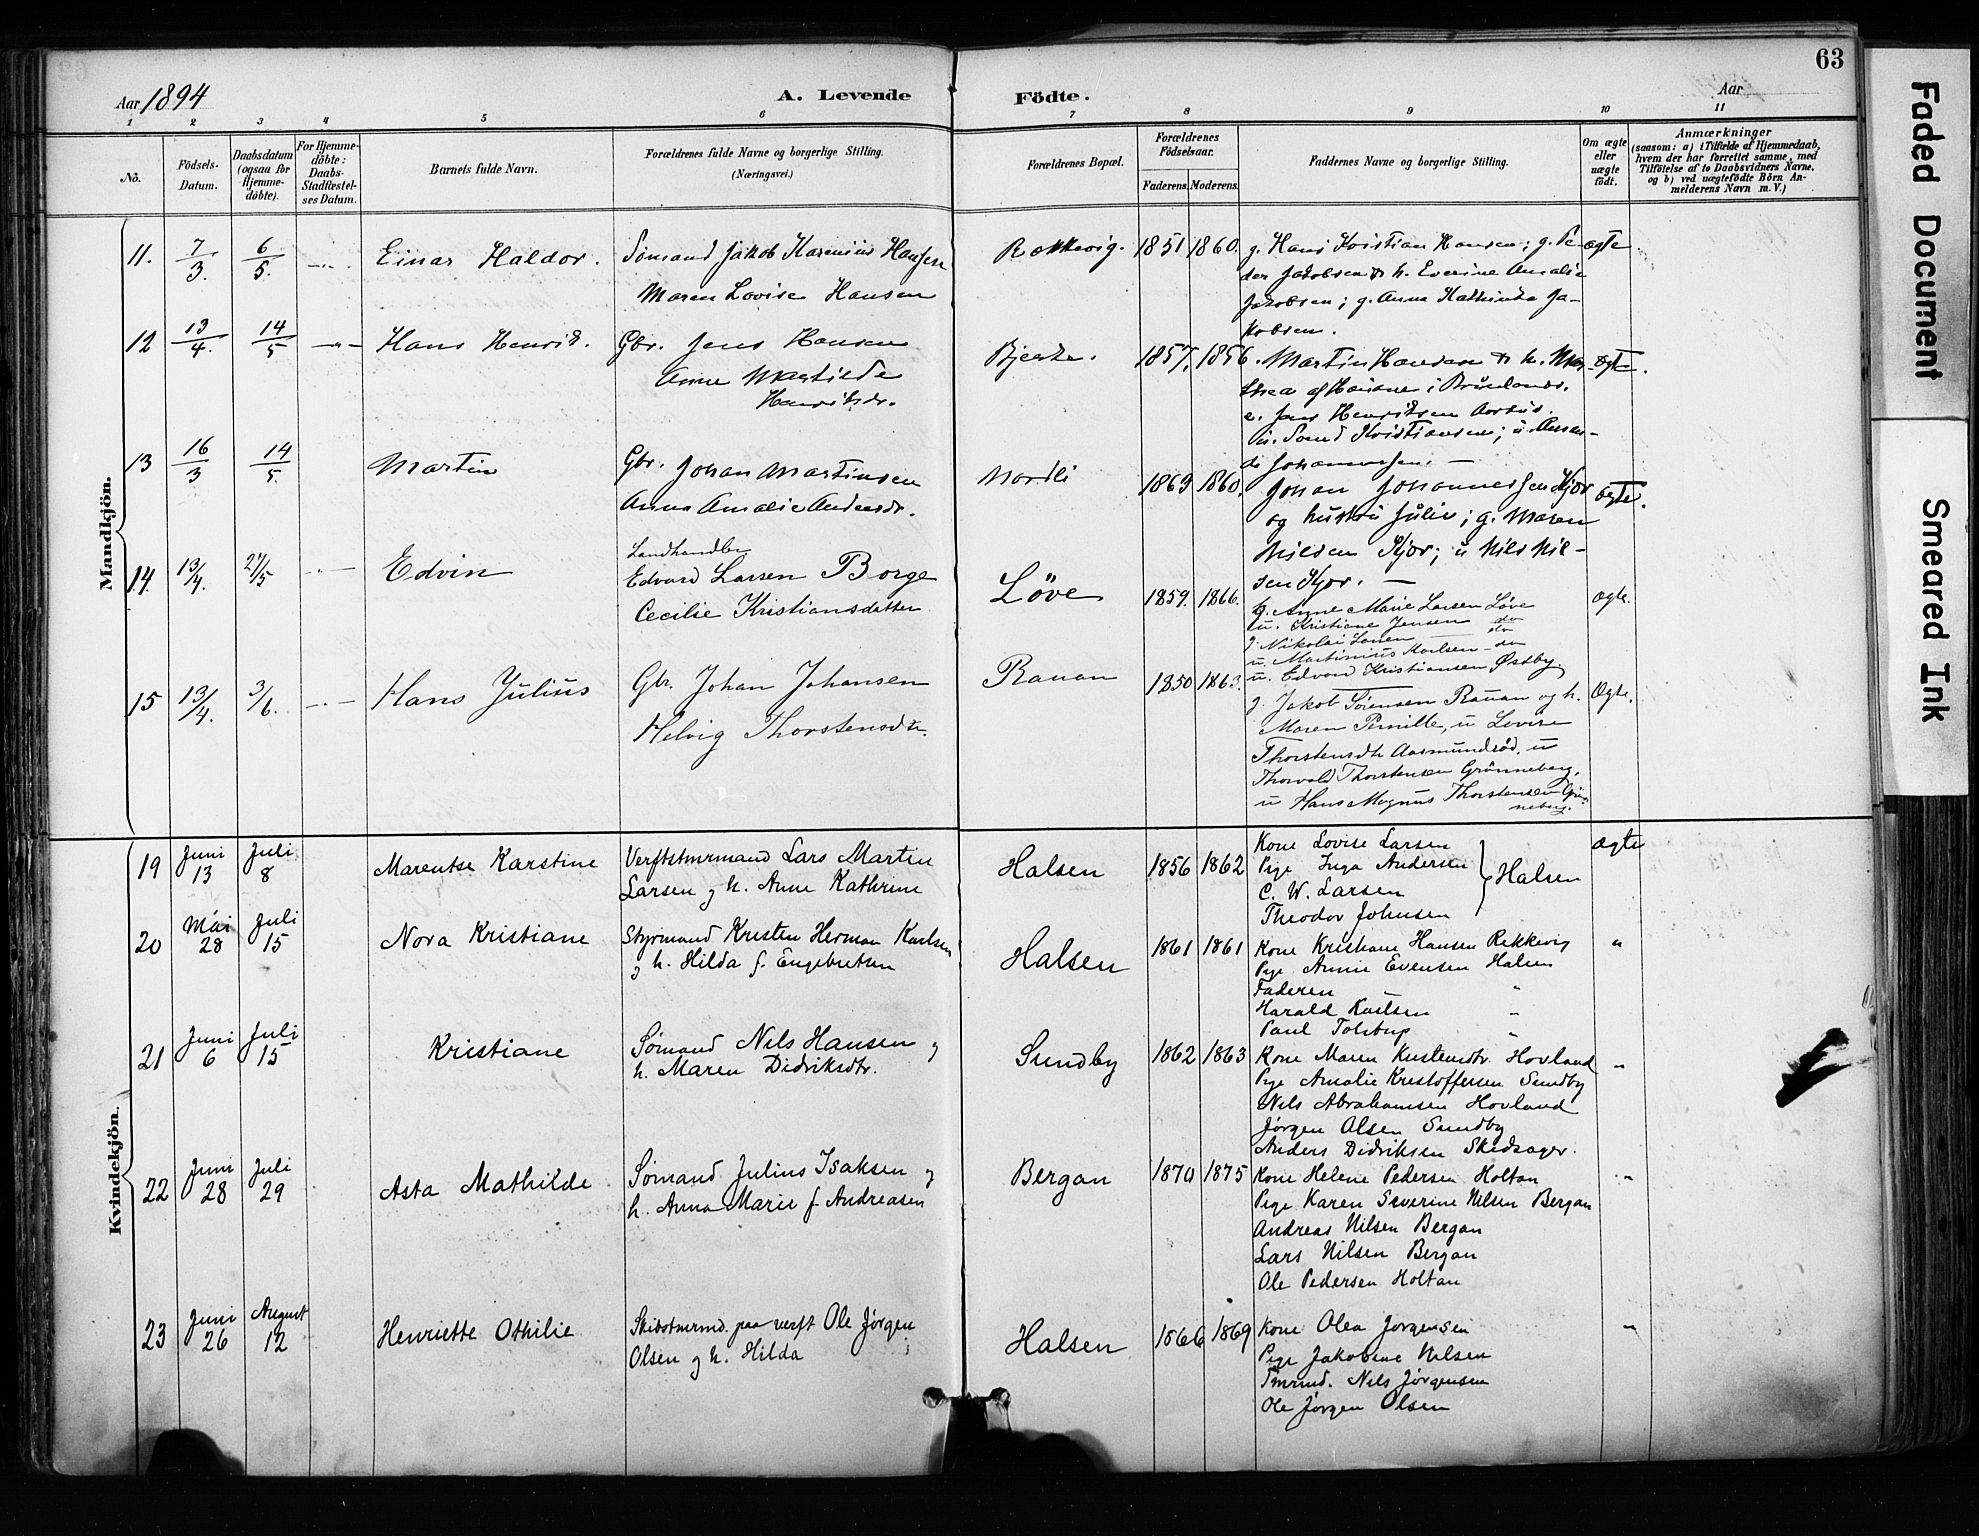 63
Aar 1894
A. Levende Födte.
Aar
1 2 3 4 5 6 7 8 9 10 11
No.
Födsels-Datum.
Daabsdatum (ogsaa for Hjemme-döbte).
For Hjemme-döbte: Daabs-Stadfæstel-ses Datum.
Barnets fulde Navn.
Forældrenes fulde Navne og borgerlige Stilling.
(Næringsvei.)
Forældrenes Bopæl.
Forældrenes Födselsaar.
Faderens. Moderens.
Faddernes Navne og borgerlige Stilling.
Om ægte eller uægte födt.
Anmærkninger
(saasom: a) i Tilfælde af Hjemmedaab,
hvem der har forrettet samme, med
Tilföielse af to Daabsvidners Navne,
og b) ved uægtefödte Börn An-
melderens Navn m. V.)
Mandkjön.
11. 7/3. 6/5. Einar Haldor. Sömand Jakob Kareniùs Hansen
Maren Lovise Hansen
Rækkevig. 1851 1860. ægte
g. Hans Kristian Hansen; g. Pe-
der Jakobsen & h. Everine Amalie
Jakobsen; g. Anna Kathinka Ja-
kobsen.
12 13/4. 14/5 Hans Henrik. Gbr. Jens Hansen
Anne Mathilde
Henriksdr.
Bjerke. 1857. 1856. ægte.
Martin Hansen & h. Mar-
thea af Hansane i Brunlanes.
e. Jens Henriksen Aarhus.
u. Kristiansen; u. Aman-
da Johannessen. —
13 16/3 14/5. Martin Gbr. Johan Martinsen
Anna Amalie Andersdr.
Nordli 1863 1860. ægte.
Johan Johannessen Kjær
og hustru Julie; g. Maren
Nilsen Kjær; u Nils Nil-
sen Kjær. —
14. 13/4. 27/5 Edvin Landhandler
Edvard Larsen Borge
Cecilie Kristiansdatter
Løve 1859. 1866. ægte.
g. Anne Marie Larsen Løve
u. Kristiane Jensen do
g. Nikolai Larsen — do
u. Martinius Karlsen — do
u. Edvard Kristiansen Østby.
15 13/4. 3/6. Hans Julius Gbr. Johan Johansen
Helvig Thorstensdtr.
Rauan 1850 1863. Ægte.
g. Jakob Sørensen Rauan og h.
Maren Pernille, u Lovise
Thorstensdtr Aasmundrød, u
Thorvald Thorstensen Grønneberg,
u Hans Magnus Thorstensen Grøn-
neberg.
Kvindekjön.
19 Juni 13 Juli 8 Marentse Karstine Verftstmrmand Lars Martin
Larsen og h. Anne Kathrine
Halsen 1856 1862 ægte
Kone Lovise Larsen
Pige Inga Andersen
C. W. Larsen
Theodor Johnsen
Halsen
20 Mai 28 Juli 15 Nora Kristiane Styrmand Kresten Herman Karlsen
og h. Hilda f. Engebretsen
Halsen 1861 1861 "
Kone Kristiane Hansen Rekkevig
Pige Annie Evensen Halsen
Faderen "
Harald Karlsen "
Paul Tolstrup "
21 Juni 6 Juli 15 Kristiane Sømand Nils Hansen og
h. Maren Didriksdtr.
Sundby 1862 1863 "
Kone Maren Kristensdtr. Hovland
Pige Amalie Kristoffersen Sundby
Nils Abrahamsen Hovland
Jørgen Olsen Sundby
Anders Didriksen Skedsager.
22 Juni 28 Juli 29 Asta Mathilde Sømand Julius Isaksen og
h. Anna Marie f Andreasen
Bergan 1870 1875 "
Kone Helene Pedersen Holtan
Pige Karen Severine Nilsen Bergan
Andreas Nilsen Bergan
Lars Nilsen Bergan
Ole Pedersen Holtan
23 Juni 26 August 12 Henriette Othilie Skibstmrmd. paa verft Ole Jørgen
Olsen og h. Hilda
Halsen 1866 1869 "
Kone Olea Jørgensen
Pige Jakobine Nilsen
Tmrmd. Nils Jørgensen
Ole Jørgen Olsen
Faded Document
Smeared Ink